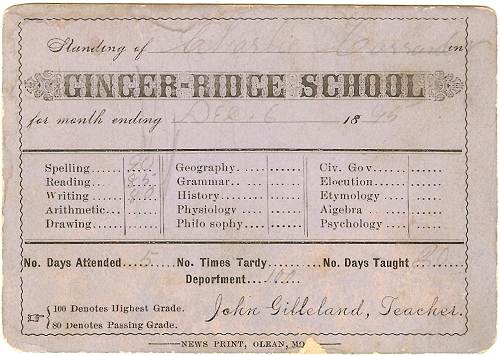 Standing of Charlie in
GINGER-RIDGE SCHOOL
for month ending Dec. 6 1895
Spelling.... 90 Geography...... Civ. Gov......
Reading.... 85 Grammar...... Elocution......
Writing.... 80 History...... Etymology......
Arithmetic... Physiology...... Algebra......
Drawing..... Philosophy...... Psychology......
No. Days Attended...5... No. Times Tardy......No. Days Taught
Deporfment...100...
100 Denotes Highest Grade.
80 Denotes Passing Grade.
John Gilleland, Teacher.
NEWS PRINT, OLEAN, MO